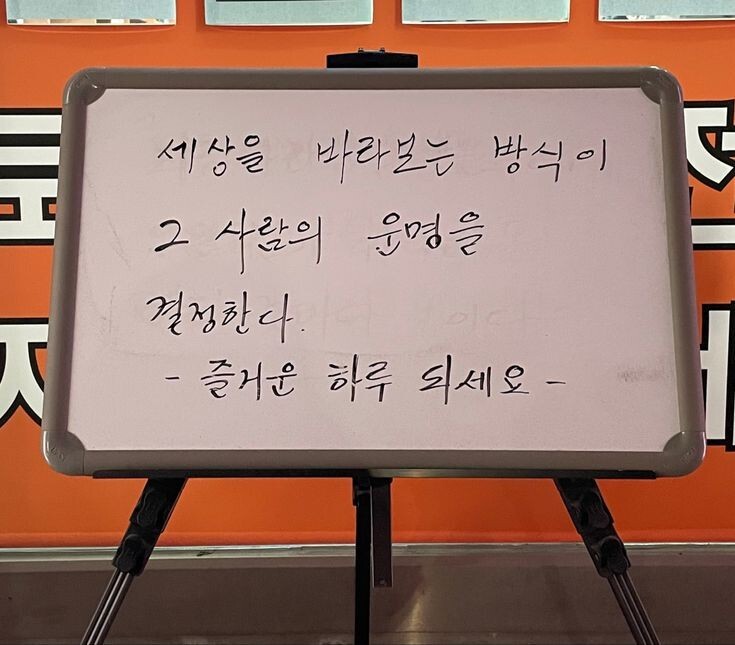 세상을 바라보는 방식이
그 사람의 운명을
결정한다.
- 즐거운 하루 되세요 -